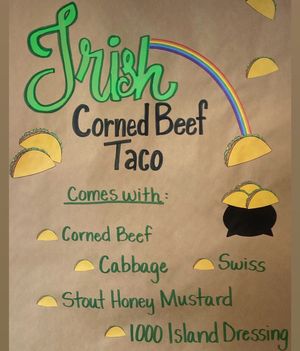 Irish
Corned Beef
Taco
Comes with:
Corned Beef
Cabbage Swiss
Stout Honey Mustard
1000 Island Dressing